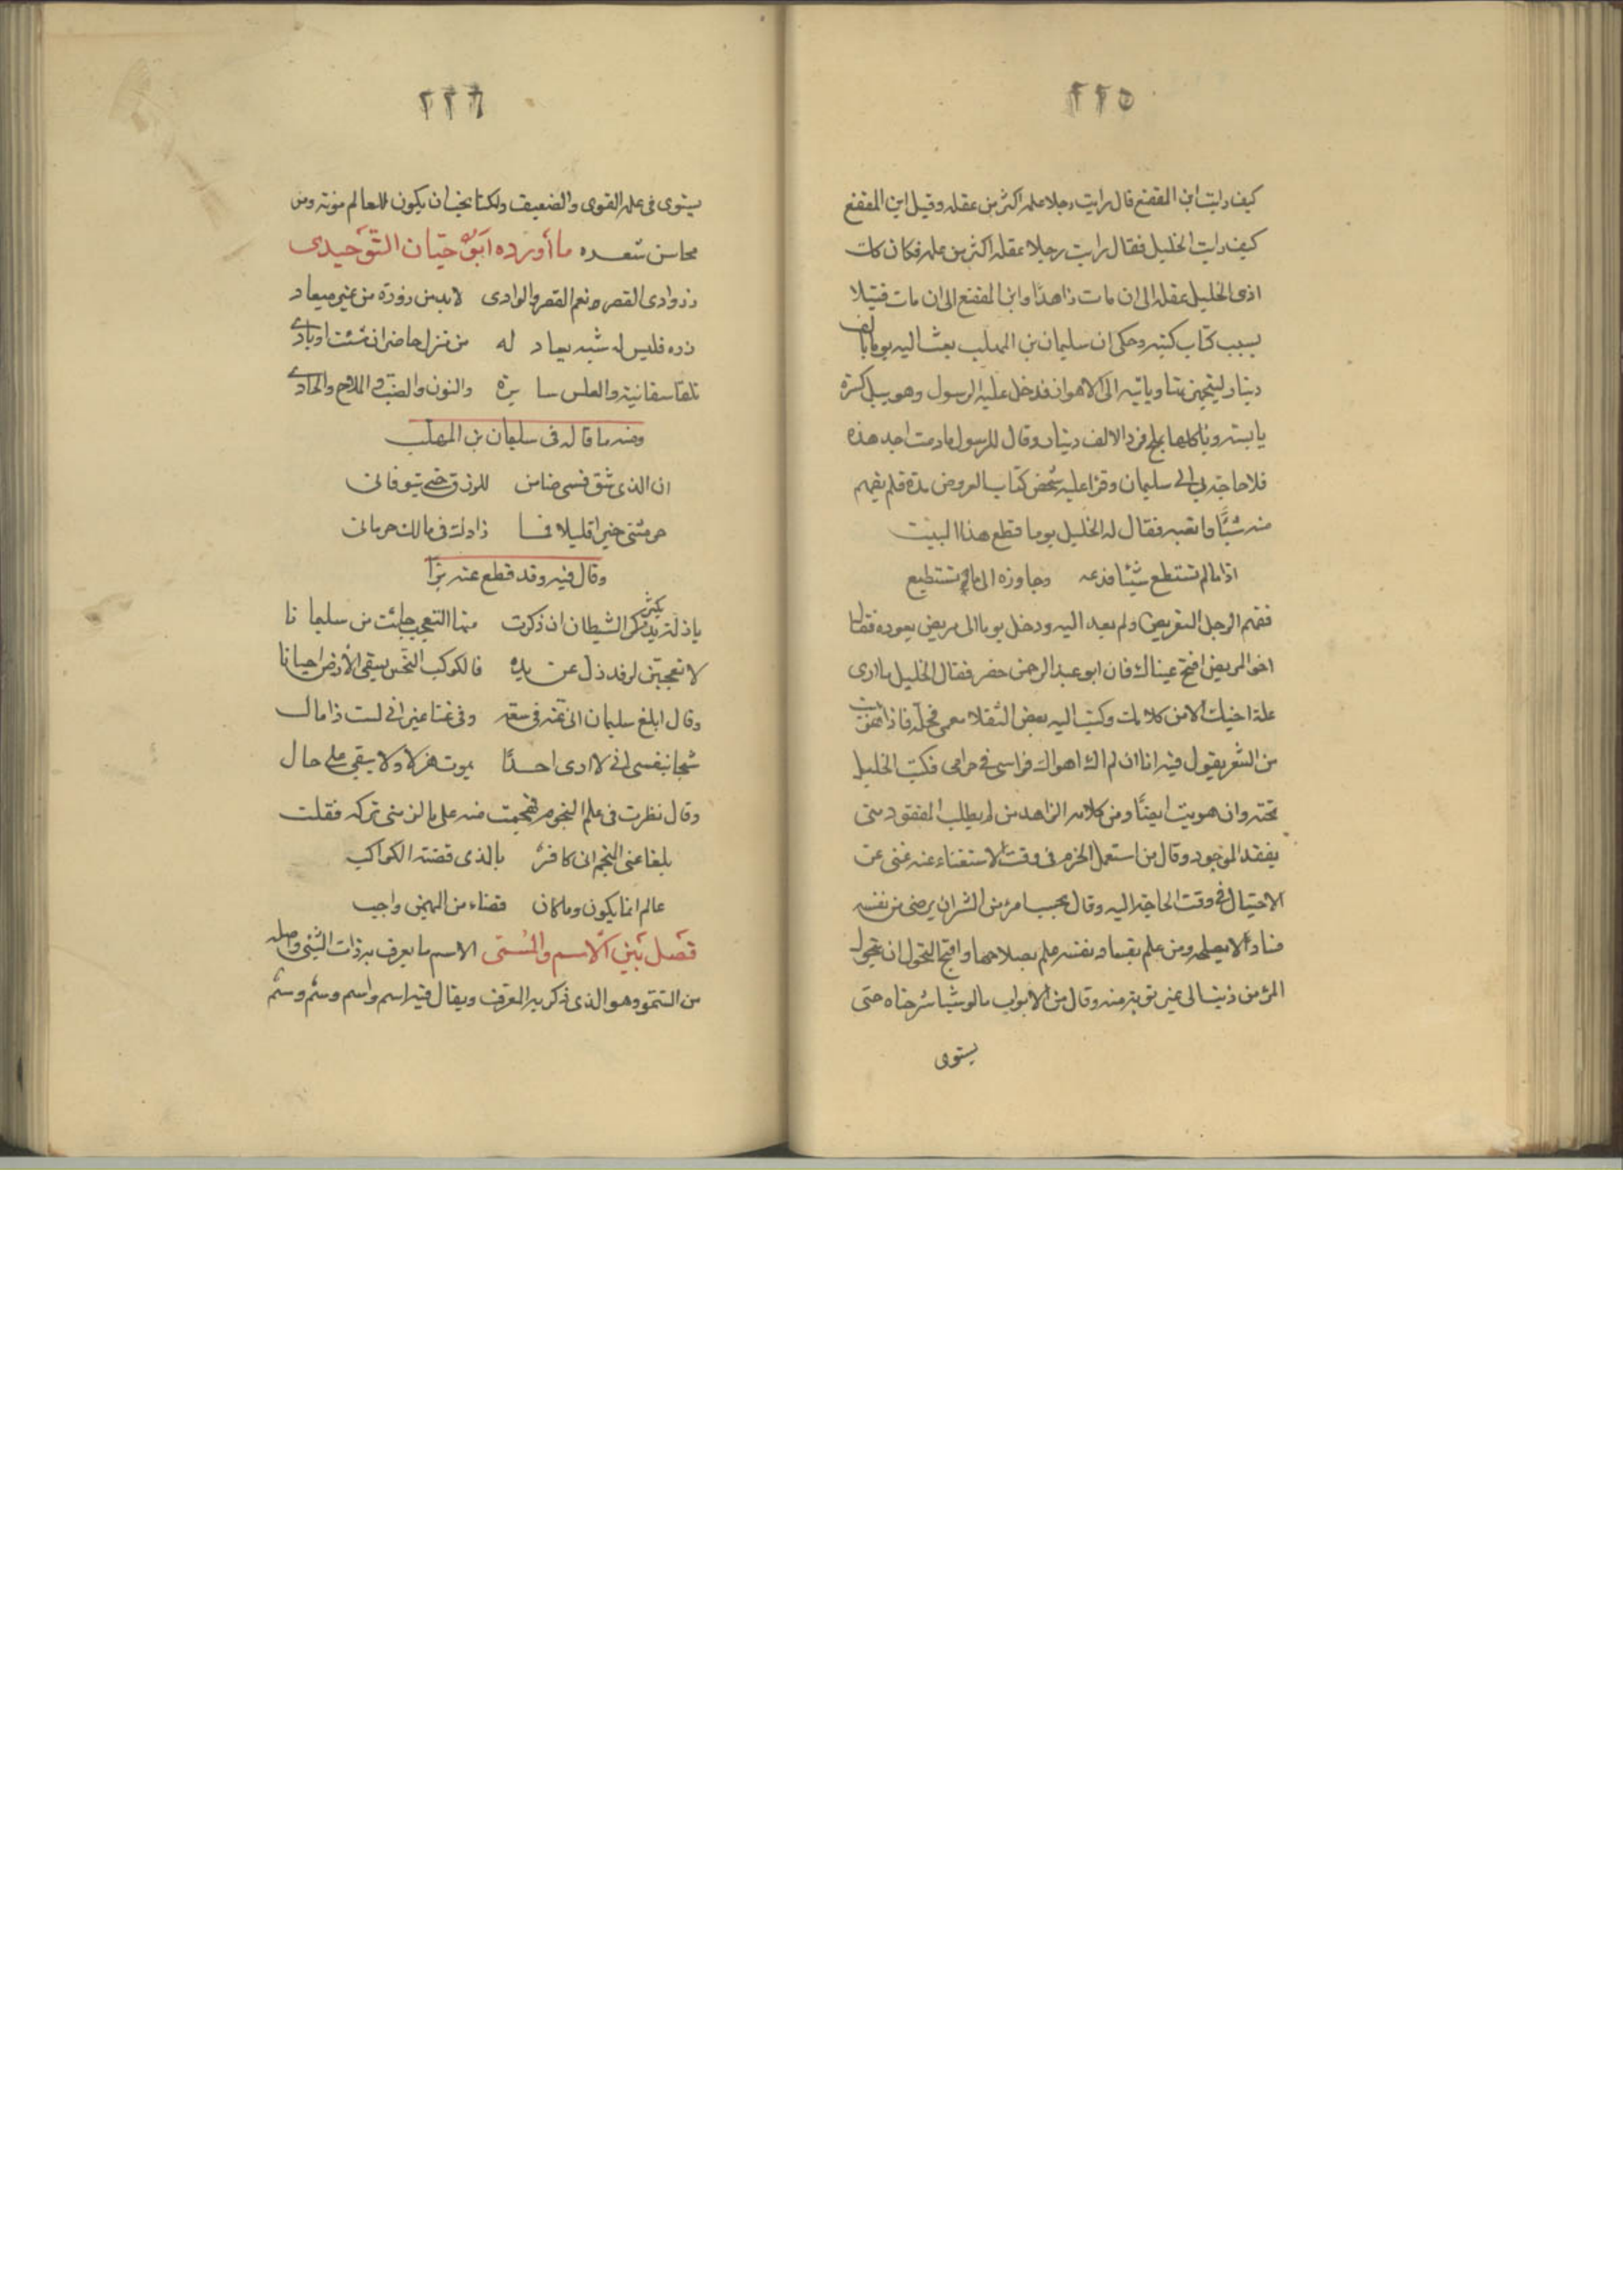 ٢٢٥
كيف رايت ابن المقفع قال رايت رجلا علمه اكثر من عقله وقيل ابن المقفع
كيف رايت الخليل فقال رايت رجلا عقله اكثر من علمه فكان كان
اذى الخليل عقله الى ان مات زاهدًا وابن المقفع الى ان مات قتيلا
بسبب كتاب كتبه وحكى ان سليمان بن المهلب بعث اليه يوما بالف
دينار وياتيه الى الاهواز فدخل عليه الرسول وهو يبل كسرة
يابسة وياكلها بملح فرد الالف دينار وقال للرسول مادمت اجد هذه
فلا حاجة بي الى سليمان وقرا عليه شخص كتاب العروض مدة فلم يفهم
منه شيًّا واتعبه فقال له الخليل يوما قطع هذا البيت
اذا ما لم تستطع شيئا فدعه وجاوزه الى ما تستطيع
ففهم الرجل التعريض ولم يعد اليه ودخل يوما الى مريض يعوده فقال
اخو المريض افتح عيناك فان ابو عبد الرحمن حضر فقال الخليل ما ارى
علة اخيك الا من كلامك وكتب اليه بعض الثقلا معمى
من الشعر يقول فيه انا ان لم اك اهواك فراسى فى حرامى فكتب الخليل
تحته وان هويت ايضًا ومن كلامه الزاهد من لم يطلب المفقود حتى
يفقد الموجود وقال من استعمل الحزم فى وقت الاستغناء عنه غنى عن
الاحتيال فى وقت الحاجة اليه وقال عجب امرء من الشر ان يرضى من نفسه
فسادًا لا يصلحه ومن علم بفساد نفسه علم بصلاحها واقبح التحول ان يتحول
المرء من ذنب الى غير توبة منه وقال من الابواب ما لو شيئا شرحناه حتى
يستوى
٢٢٦
يستوى فى علمه القوى والضعيف ولكنا نحب ان يكون للعالم مونة ومن
محاسن شعره ما أورده أبو حيّان التّوحيدى
زر وادى القصر نعم القصر والوادى لابد من زورة من غير ميعاد
زره فليس له شبه يعاد له من منزل حاضر ان شئت او بادى
والنون والضب والملاح والحادى
ومنه ما قاله فى سليمان بن المهلب
ان الذى شق فمى ضامن للرزق حتى يتوفانى
حرمتنى خيرا قليلا فما زادك فى مالك حرمانى
وقال فيه وقد قطع عنه برًا
يكثر الشيطان ان ذكرت منها التعجب جاءت من سليمانا
لا تعجبن لرفد زل عن يده فالكوكب النحس يسقى الأرض احيانا
وقال ابلغ سليمان انى عنه فى سعة وفى غنا غير انى لست ذا مال
شحا بنفسى انى لا ارى احدًا يموت هزلا ولا يبقى على حال
وقال نظرت فى علم النجوم فهجمت منه على ما لزمنى تركه فقلت
بلغا عنى المنجم انى كافرٌ بالذى قضته الكواكب
عالم انما يكون وما كان قضاء من المهيمن واجب
فصل بين الاسم والمسمى الاسم ما يعرف به ذات الشئ واصله
من السمو وهو الذى ذكر به المعرف ويقال فيه اسم واسم وسم وسم